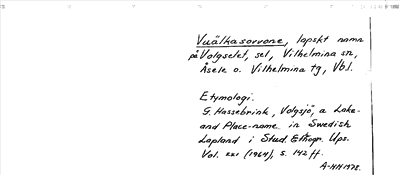 Vuälkasorvone, lapskt namn
på Volgselet, sel, Vilhelmina sn,
Åsele o. Vilhelmina tg, Vbl.
Etymologi.
G. Hasselbrink, Volgsjö, a Lake-
and Place-name in Swedish
Lapland i Stud. Ethogr. Ups.
Vol. XXI (1964), s. 142 ff.
A-HH 1978.